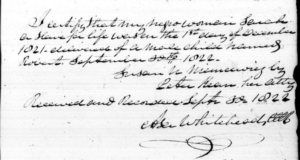 I certify that my negro woman Sarah
a Slave for life was on the 1st day of December
1821. delivered of a male child named
Robert. September 30th 1822.
Susan U Niemcewicz by
Peter Kean her atty
Received and Recorded Sept. 30. 1822
Whitehead, Clk